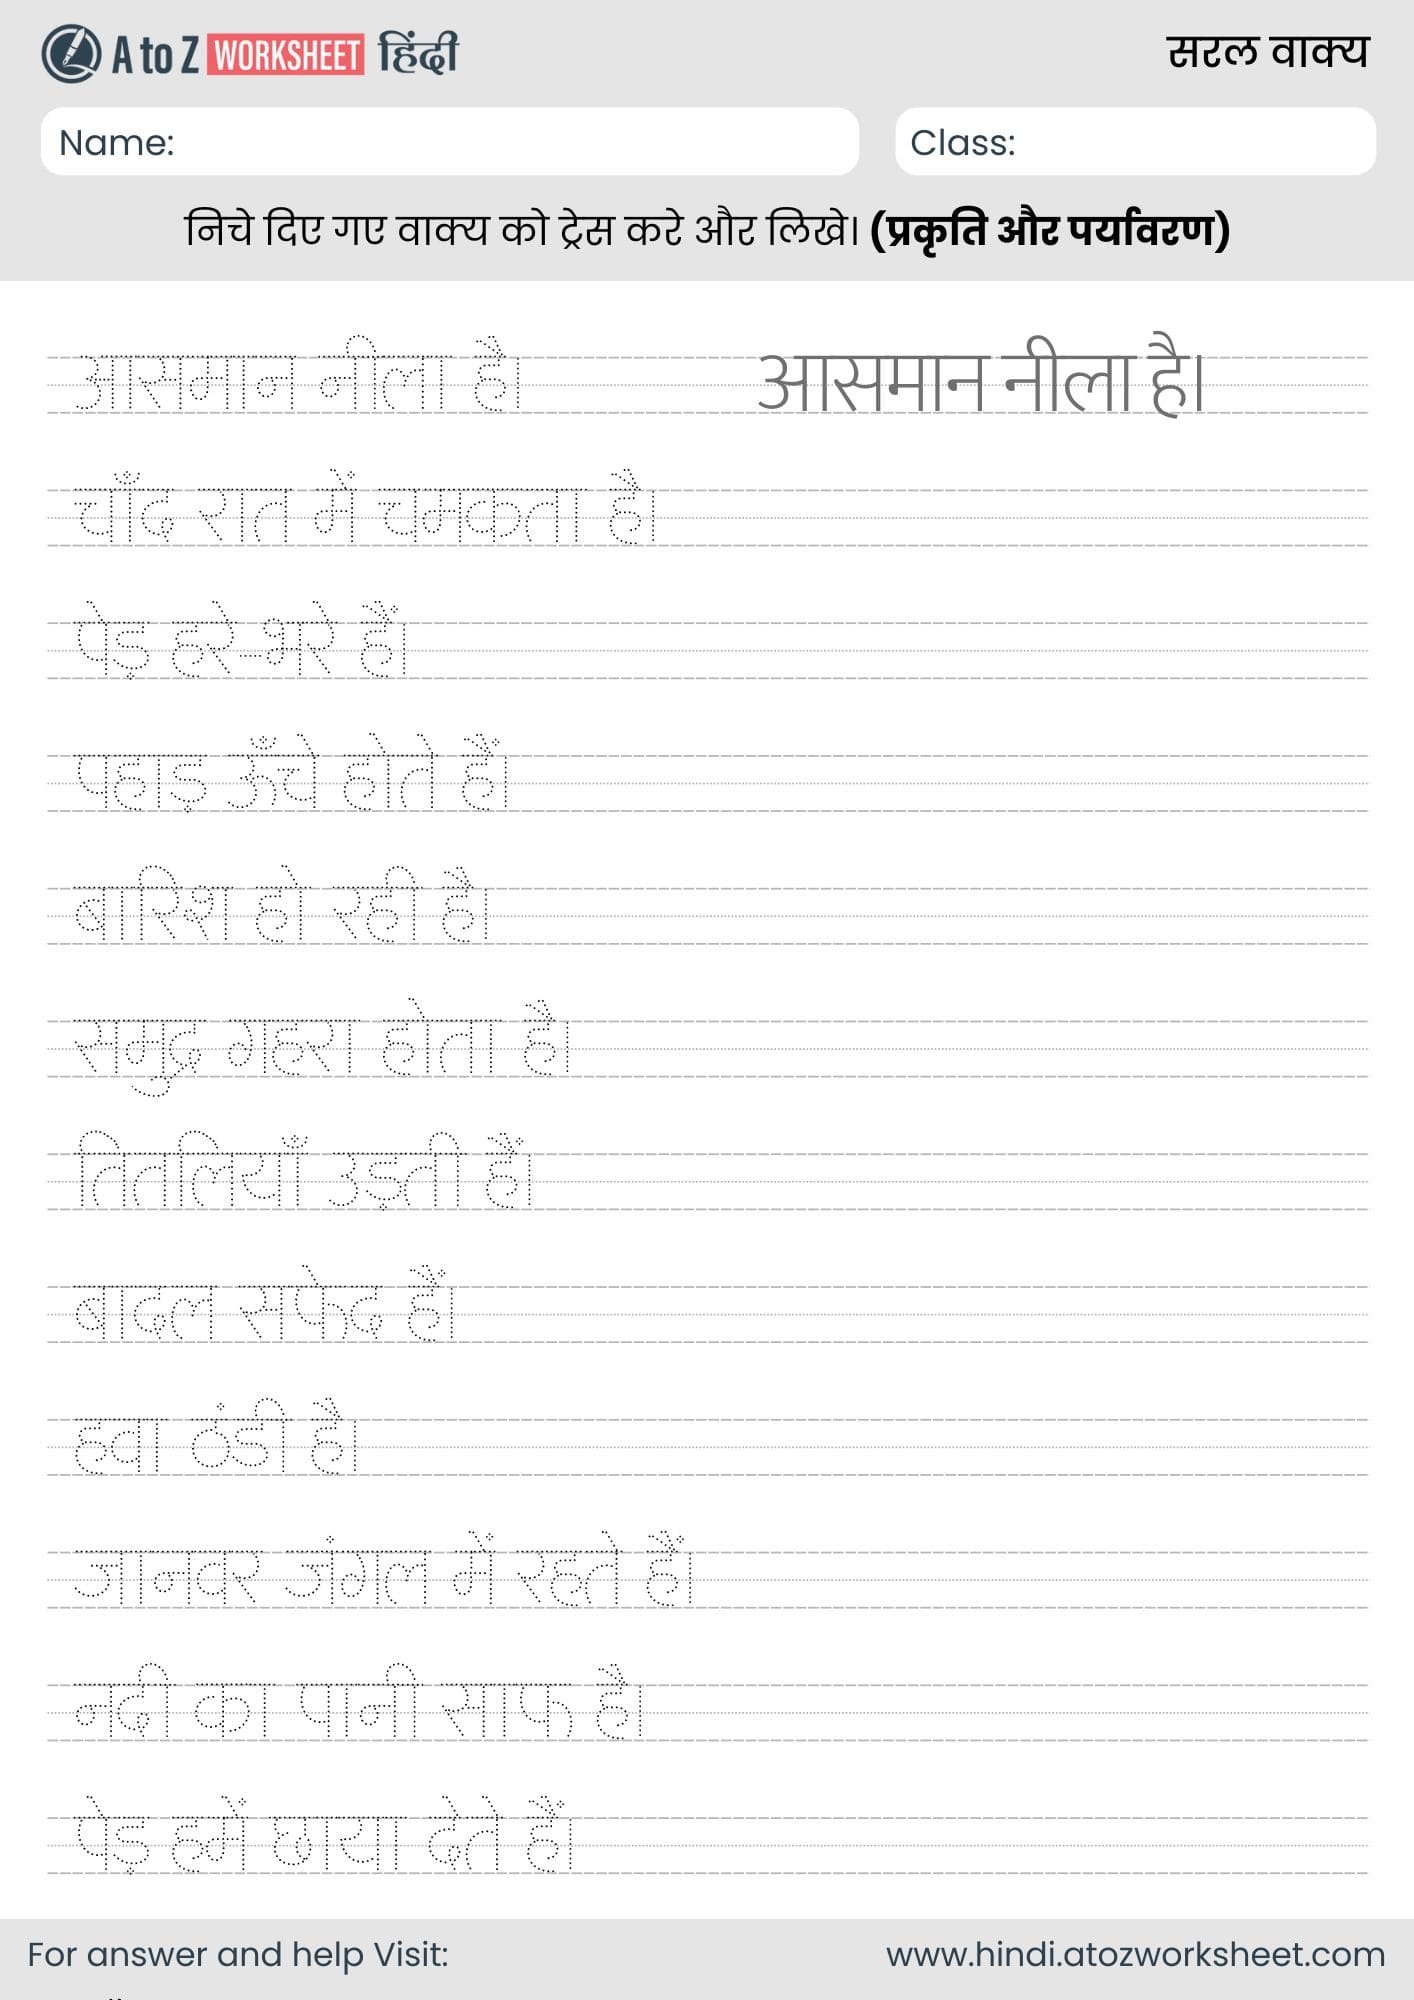 A to Z WORKSHEET हिंदी
सरल वाक्य
Name:
Class:
निचे दिए गए वाक्य को ट्रेस करे और लिखे। (प्रकृति और पर्यावरण)
आसमान नीला है। आसमान नीला है।
चाँद रात में चमकता है।
पेड़ हरे-भरे हैं।
पहाड़ ऊँचे होते हैं।
बारिश हो रही है।
समुद्र गहरा होता है।
तितलियाँ उड़ती हैं।
बादल सफेद हैं।
हवा ठंडी है।
जानवर जंगल में रहते हैं।
नदी का पानी साफ है।
पेड़ हमें छाया देते हैं।
For answer and help Visit:
www.hindi.atozworksheet.com